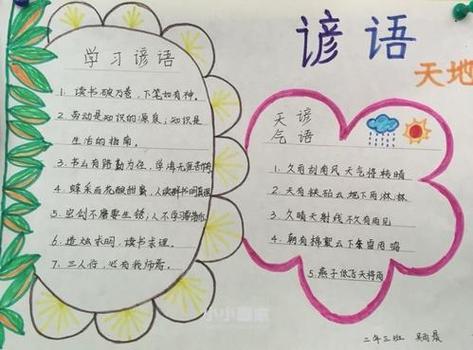 谚语
天地
学习谚语
1. 读书破万卷，下笔如有神。
2. 劳动是知识的源泉；知识是
生活的指南。
3. 书山有路勤为径，学海无涯苦作舟
4. 蜂采百花酿甜蜜，人读群书明真理
5. 宝剑不磨要生锈；人不学习要落后
6. 造烛求明，读书求理。
7. 三人行，必有我师焉。
天谚
气语
1. 久雨刮南风 天气将转晴
2. 天有铁砧云 地下雨淋淋
3. 久晴天射线 不久有雨见
4. 朝有棉絮云 下午雷雨鸣
5. 燕子低飞天将雨
二年三班
小小画家